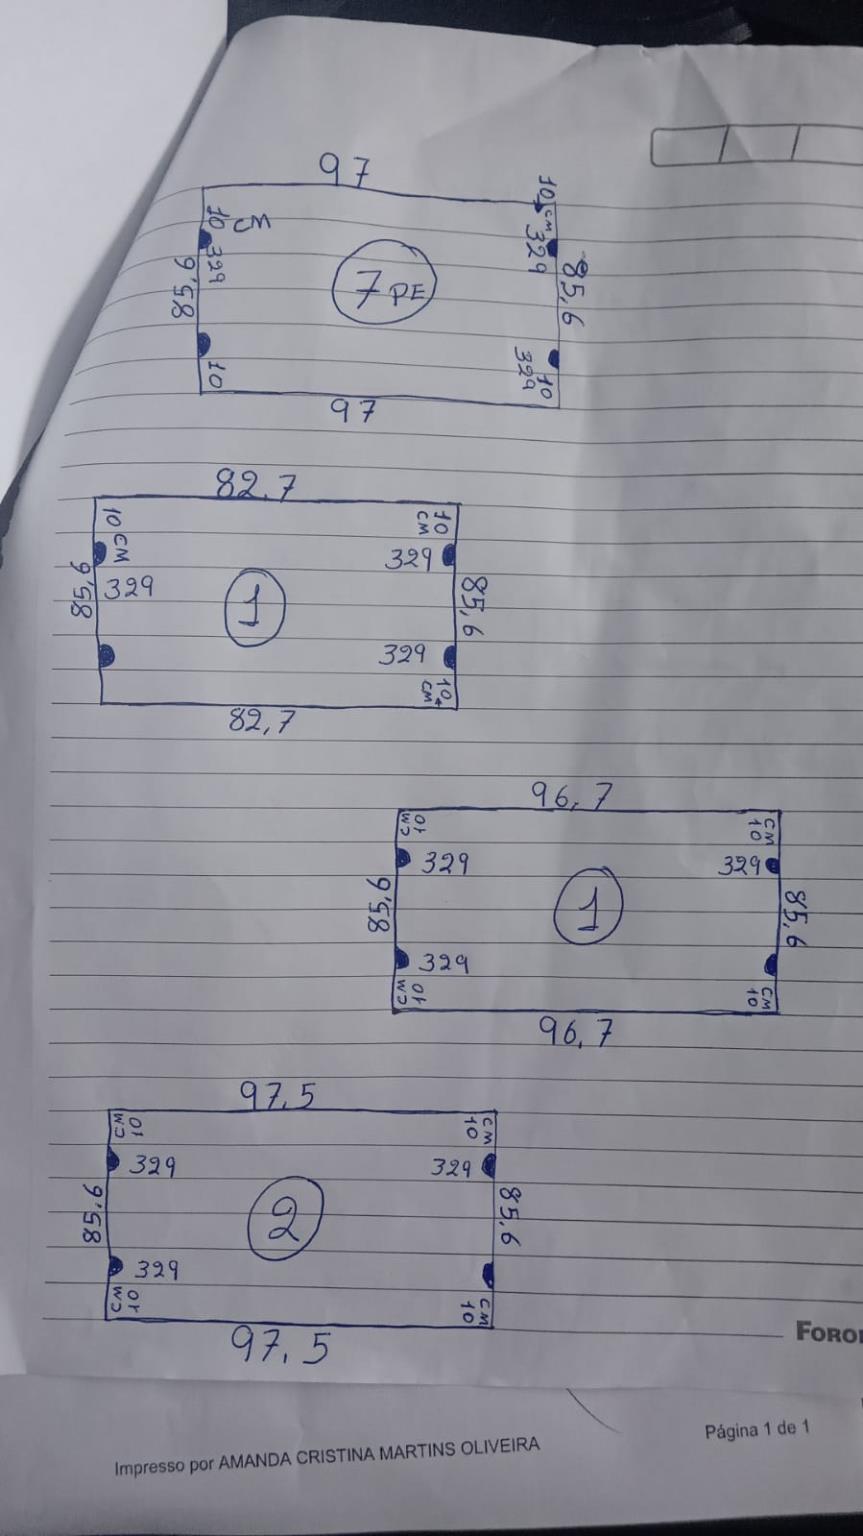 97
10 cm
329
10 cm
329
85,6
85,6
7 PE
329
10
10
97
82,7
10 CM
10 CM
329
329
85,6
85,6
1
329
10 CM
82,7
96,7
10 CM
CM 10
329
329
85,6
85,6
1
329
10 CM
CM 10
96,7
97,5
10 CM
CM 10
329
329
85,6
85,6
2
329
10 CM
CM 10
97,5
FORO
Página 1 de 1
Impresso por AMANDA CRISTINA MARTINS OLIVEIRA